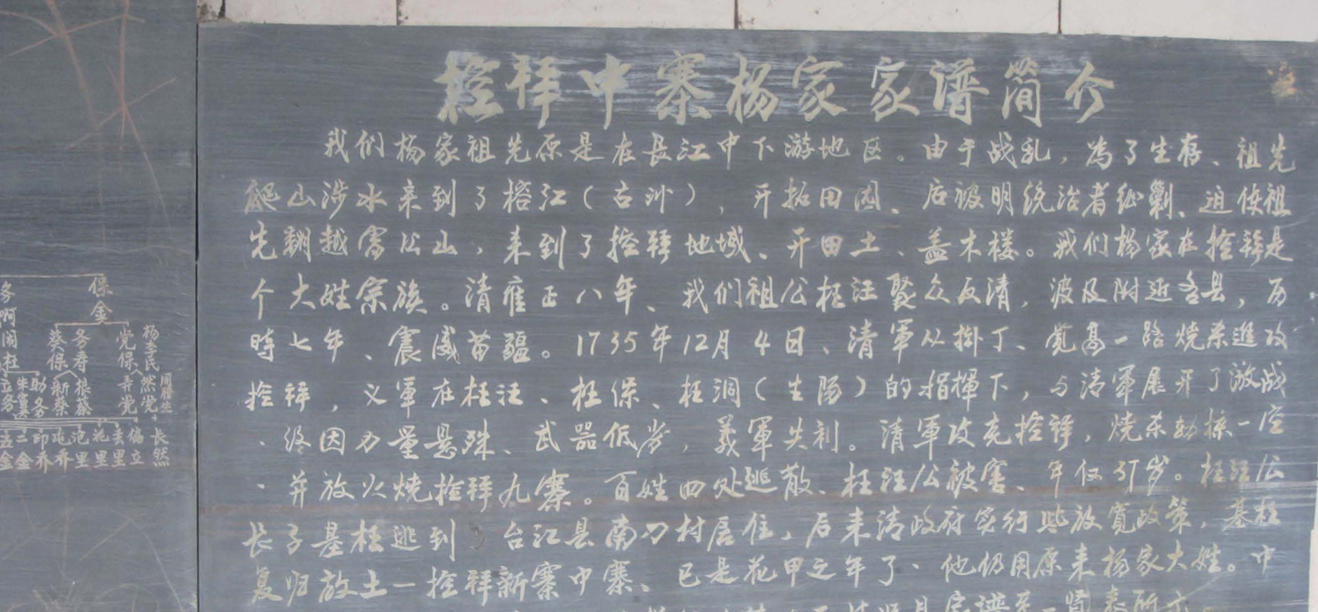 控拜中寨杨家家谱简介
我们杨家祖先原是在长江中下游地区。由于战乱，为了生存、祖先
爬山涉水来到了榕江（古州），开拓田园、后被明统治者征剿、迫使祖
先翻越雷公山，来到了控拜地域、开田土、盖木楼。我们杨家在控拜是
个大姓宗族。清雍正八年、我们祖公枉汪聚众反清，波及附近各县，历
时七年、震威苗疆。1735年12月4日、清軍从掛丁、党高一路烧杀進攻
控拜，义軍在枉汪、枉保、枉洞（生陽）的指揮下，与清軍展开了激战
、终因力量悬殊、武器低劣，義軍失利。清軍攻克控拜，烧杀劫掠一空
、并放火烧控拜九寨。百姓四处逃散、枉汪公被害、年仅37岁。枉汪公
长子基枉逃到台江县南刀村居住，后来清政府实行些放寬政策，基枉
复归故土一控拜新寨中寨、已是花甲之年了、他仍用原来杨家大姓。中
保金
务啊闹枉
蔡保新蔡
务寿根蔡
党保寺党
杨孝民然党
长然